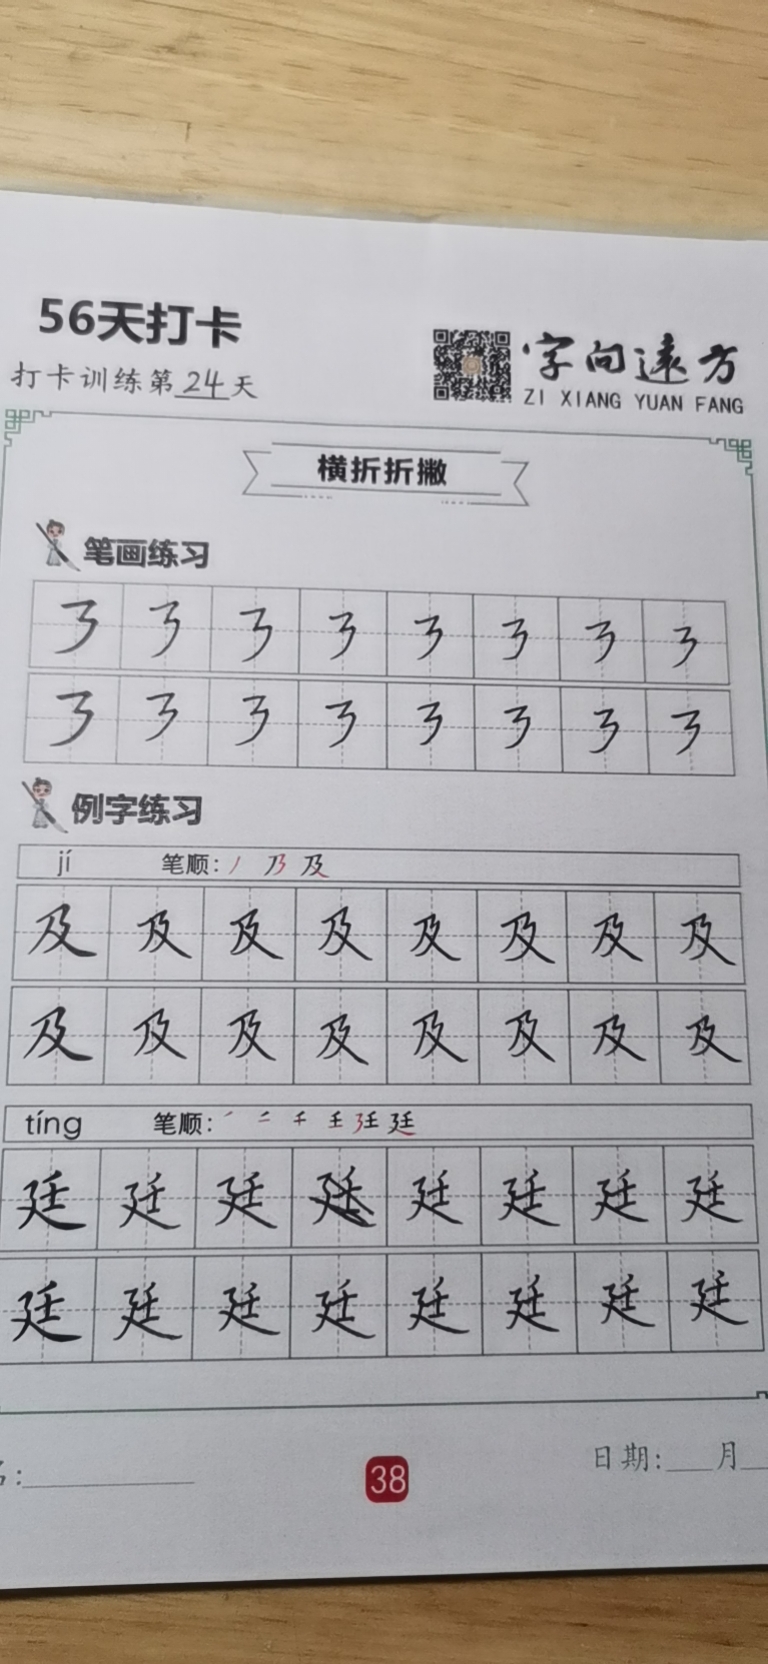 56天打卡
打卡训练第24天
字向远方
ZI XIANG YUAN FANG
横折折撇
笔画练习
㇋ ㇋ ㇋ ㇋ ㇋ ㇋ ㇋ ㇋
㇋ ㇋ ㇋ ㇋ ㇋ ㇋ ㇋ ㇋
例字练习
jí 笔顺: 丿 乃 及
及 及 及 及 及 及 及 及
及 及 及 及 及 及 及 及
tíng 笔顺: ㇒ 二 千 王 廷 廷
廷 廷 廷 廷 廷 廷 廷
廷 廷 廷 廷 廷 廷 廷 廷
名:
38
日期: 月